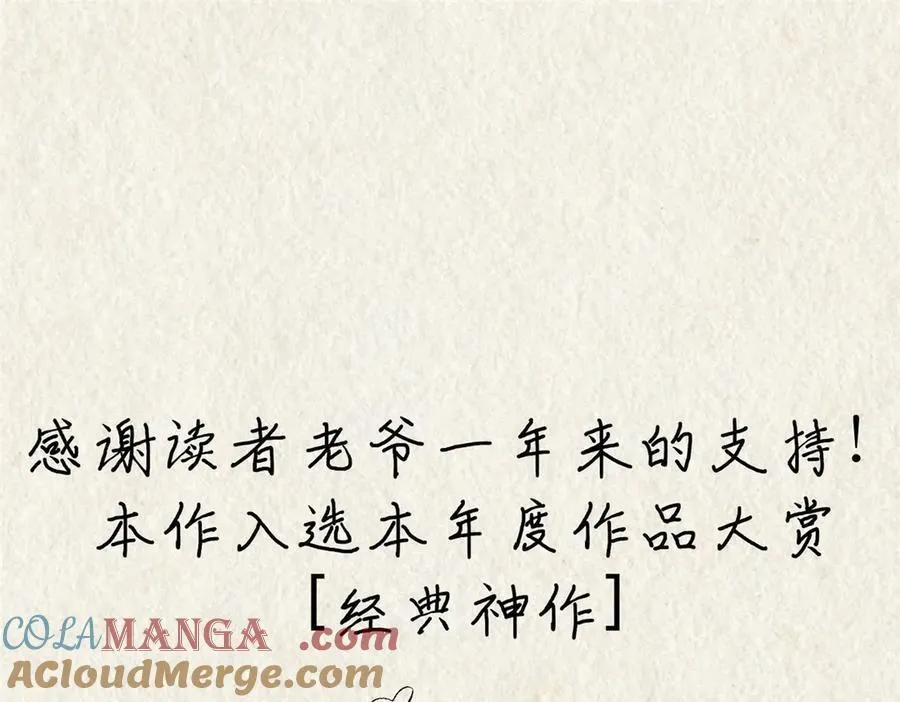 感谢读者老爷一年来的支持!
本作入选本年度作品大赏
[经典神作]
COLAMANGA.com
ACloudMerge.com